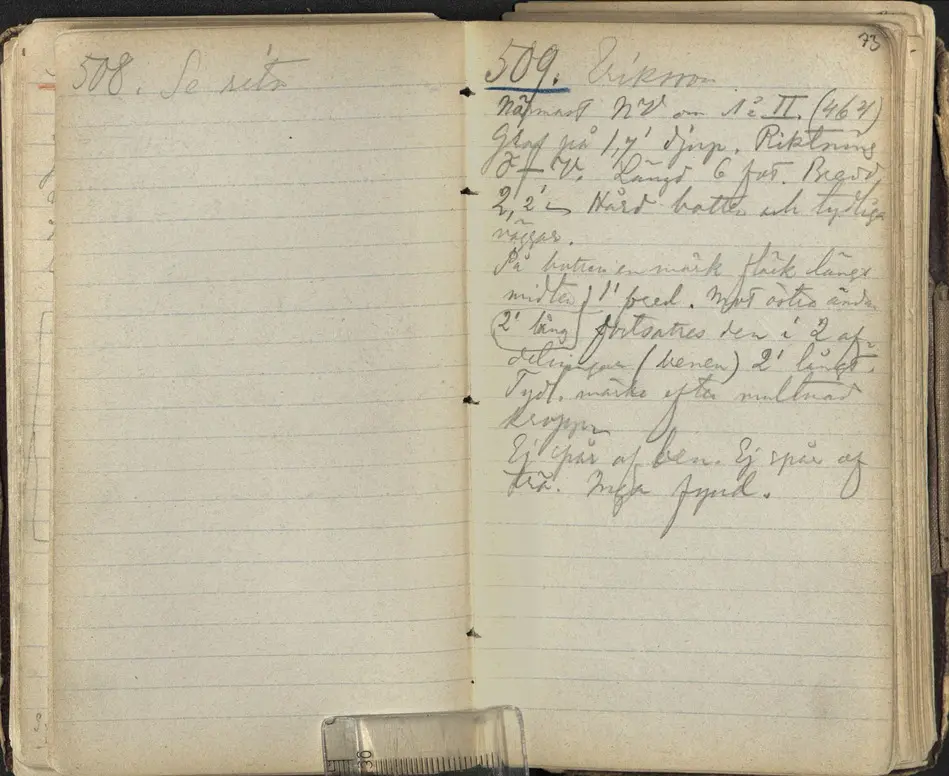 508. Se
73
509. Eriksson
Närmast NV om N:o II. (464)
Graf på 1,7' djup. Riktning
Ö–V. Längd 6 fot. Bredd
2,2' Hård botten och tydliga
väggar.
På botten en mörk fläck längs
midten 1' bred. Mot östra ändan
2' lång fortsattes den i 2 af-
delningar (benen) 2' långt.
Tydl. märke efter multnad
kroppen
Ej spår af ben. Ej spår af
trä. Inga fynd.